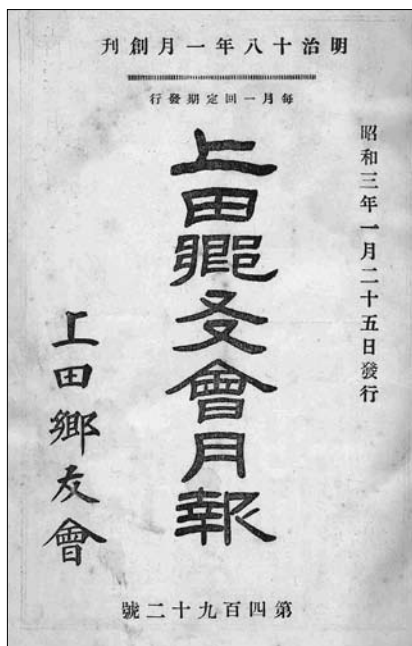 明治十八年一月創刊
每月一回定期發行
昭和三年一月二十五日發行
上田郷友會月報
上田鄉友會
第四百九十二號